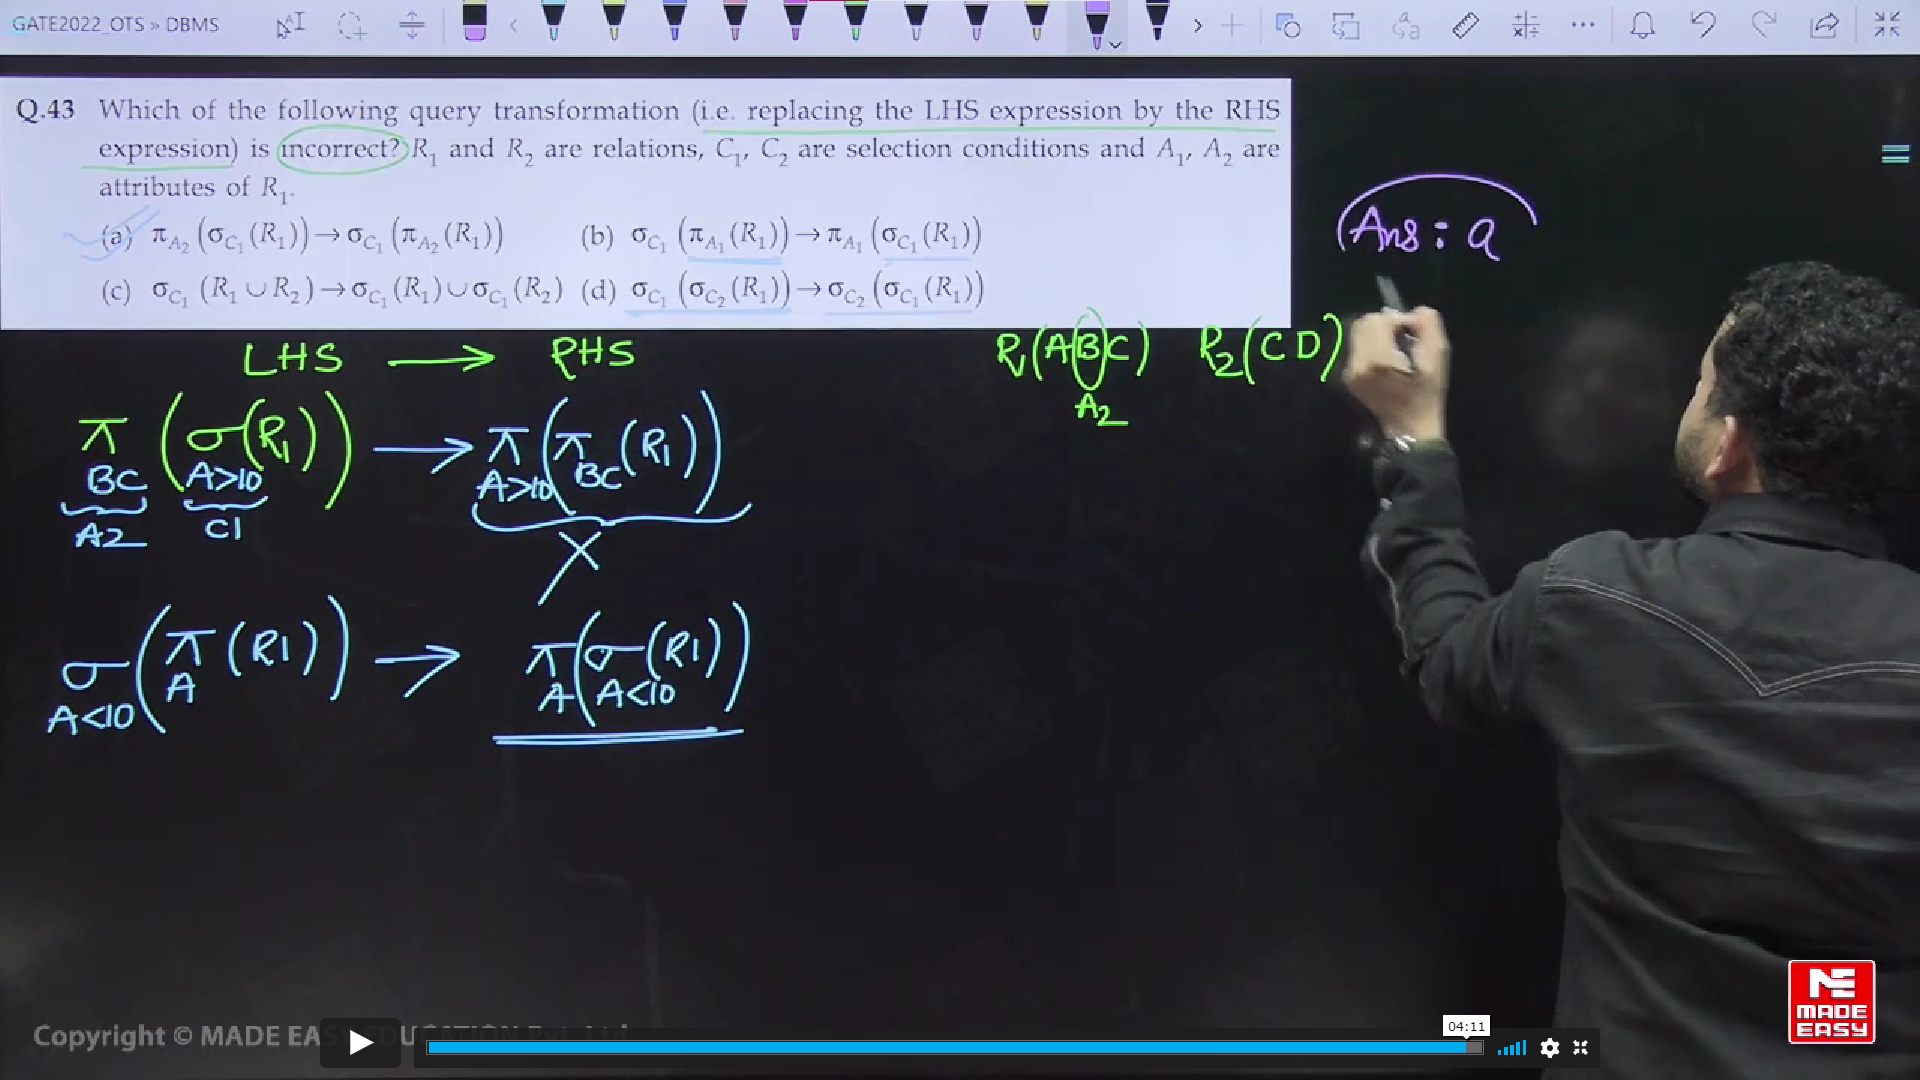 GATE2022_OTS » DBMS
Q.43 Which of the following query transformation (i.e. replacing the LHS expression by the RHS
expression) is incorrect? R₁ and R₂ are relations, C₁, C₂ are selection conditions and A₁, A₂ are
attributes of R₁.
(a) π_A₂ (σ_C₁ (R₁)) → σ_C₁ (π_A₂ (R₁)) (b) σ_C₁ (π_A₁ (R₁)) → π_A₁ (σ_C₁ (R₁))
(c) σ_C₁ (R₁ ∪ R₂) → σ_C₁ (R₁) ∪ σ_C₁ (R₂) (d) σ_C₁ (σ_C₂ (R₁)) → σ_C₂ (σ_C₁ (R₁))
Ans: a
LHS → RHS
R₁(ABC) R₂(CD)
A₂
π_BC (σ_A>10 (R₁)) → π_A>10 (π_BC (R₁))
A2 C1
X
σ_A<10 (π_A (R1)) → π_A (σ_A<10 (R1))
NE
MADE
EASY
Copyright © MADE EASY EDUCATION Pvt. Ltd
04:11